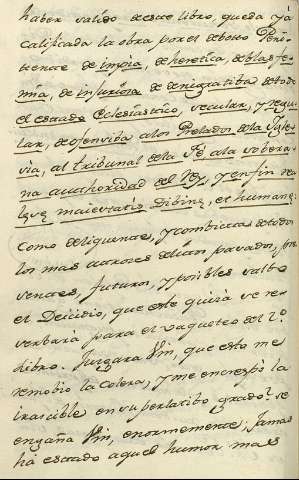 haber salido de este libro, queda ya
calificada la obra por el devoto Peni
tente de impia, de heretica, de blasfe
mia, de injuriosa de denigratiba de todo
el estado Eclesiastico, secular, y regu
lar, de ofensiba a los Prelados de la Igle
sia, al tribunal de la Fé a la sobera
na authoridad del Rey, y en fin de
leque maiestatis Dibine, et humane:
como deliquente, y combicta de todos
los mas atroces delitos pasados, pre
sentes, futuros, y posibles salbo
el Deicidio, que este quizà se re
serbarà para el saqueteo del 2.º
libro. Juzgara Vm, que esto me
remobio la colera, y me encrespò la
irascible en superlatibo grado? se
engaña Vm, enormemente; Jamas
ha estado aquel humor mas